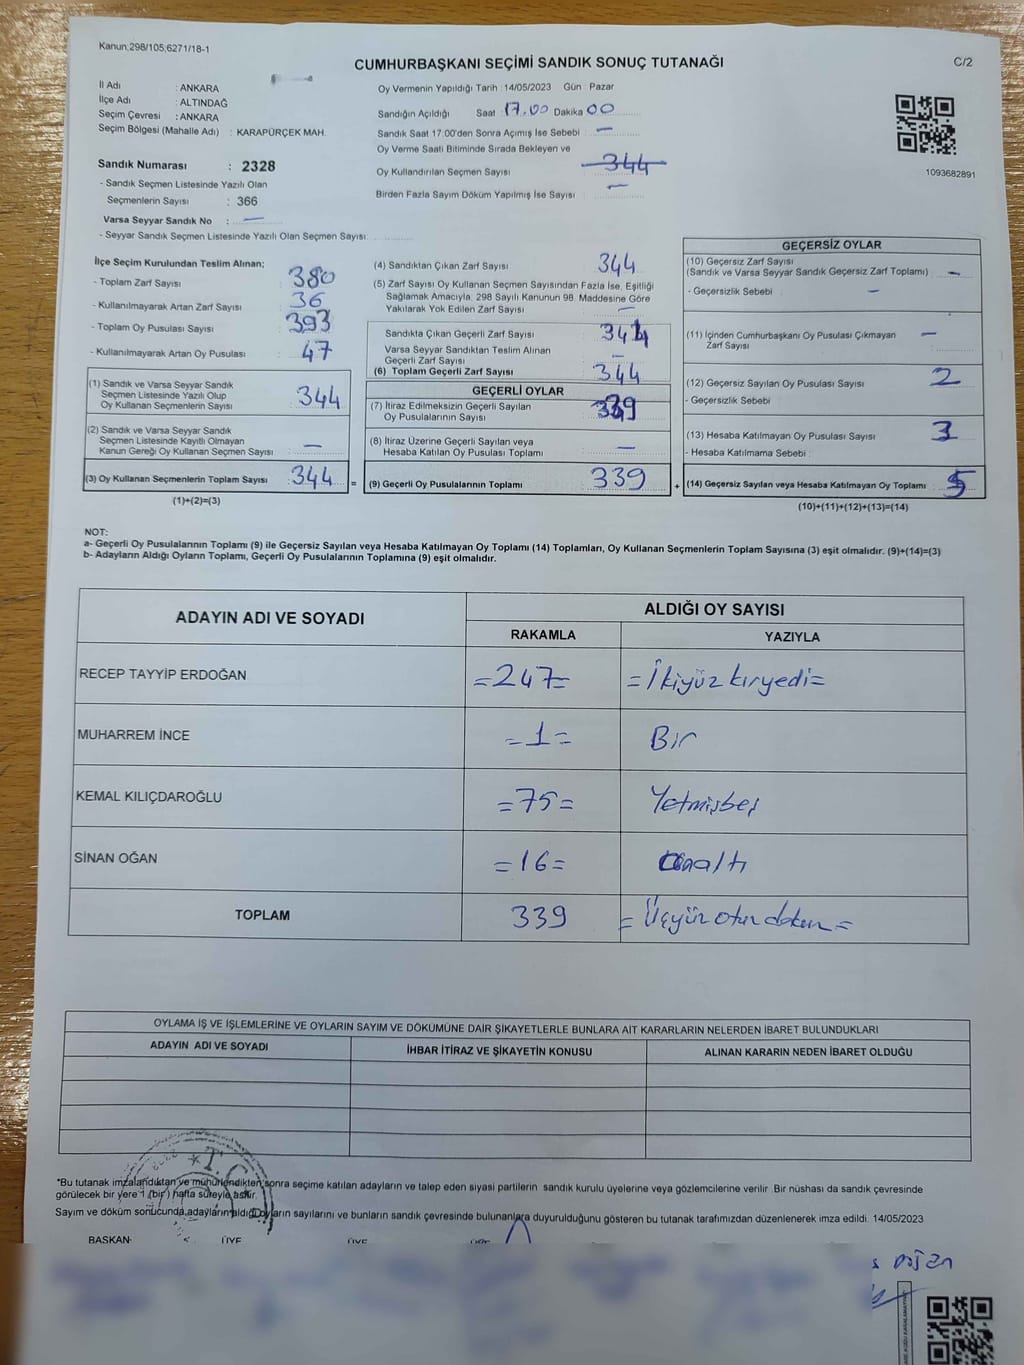 Kanun;298/105;6271/18-1
CUMHURBAŞKANI SEÇİMİ SANDIK SONUÇ TUTANAĞI
C/2
İl Adı : ANKARA
İlçe Adı : ALTINDAĞ
Seçim Çevresi : ANKARA
Seçim Bölgesi (Mahalle Adı) : KARAPÜRÇEK MAH.
Oy Vermenin Yapıldığı Tarih : 14/05/2023 Gün : Pazar
Sandığın Açıldığı Saat : 17.00 Dakika 00
Sandık Saat 17:00'den Sonra Açımış İse Sebebi : —
Oy Verme Saati Bitiminde Sırada Bekleyen ve
Oy Kullandırılan Seçmen Sayısı : 344
Birden Fazla Sayım Döküm Yapılmış İse Sayısı : —
1093682891
Sandık Numarası : 2328
- Sandık Seçmen Listesinde Yazılı Olan
Seçmenlerin Sayısı : 366
Varsa Seyyar Sandık No : —
- Seyyar Sandık Seçmen Listesinde Yazılı Olan Seçmen Sayısı :
İlçe Seçim Kurulundan Teslim Alınan;
- Toplam Zarf Sayısı : 380
- Kullanılmayarak Artan Zarf Sayısı : 36
- Toplam Oy Pusulası Sayısı : 393
- Kullanılmayarak Artan Oy Pusulası : 47
(1) Sandık ve Varsa Seyyar Sandık
Seçmen Listesinde Yazılı Olup
Oy Kullanan Seçmenlerin Sayısı : 344
(2) Sandık ve Varsa Seyyar Sandık
Seçmen Listesinde Kayıtlı Olmayan
Kanun Gereği Oy Kullanan Seçmen Sayısı : —
(3) Oy Kullanan Seçmenlerin Toplam Sayısı : 344 =
(1)+(2)=(3)
(4) Sandıktan Çıkan Zarf Sayısı : 344
(5) Zarf Sayısı Oy Kullanan Seçmen Sayısından Fazla İse, Eşitliği
Sağlamak Amacıyla, 298 Sayılı Kanunun 98. Maddesine Göre
Yakılarak Yok Edilen Zarf Sayısı : —
Sandıkta Çıkan Geçerli Zarf Sayısı : 344
Varsa Seyyar Sandıktan Teslim Alınan
Geçerli Zarf Sayısı : —
(6) Toplam Geçerli Zarf Sayısı : 344
GEÇERLİ OYLAR
(7) İtiraz Edilmeksizin Geçerli Sayılan
Oy Pusulalarının Sayısı : 339
(8) İtiraz Üzerine Geçerli Sayılan veya
Hesaba Katılan Oy Pusulası Toplamı : —
(9) Geçerli Oy Pusulalarının Toplamı : 339 +
GEÇERSİZ OYLAR
(10) Geçersiz Zarf Sayısı
(Sandık ve Varsa Seyyar Sandık Geçersiz Zarf Toplamı) : —
- Geçersizlik Sebebi : —
(11) İçinden Cumhurbaşkanı Oy Pusulası Çıkmayan
Zarf Sayısı : —
(12) Geçersiz Sayılan Oy Pusulası Sayısı : 2
- Geçersizlik Sebebi :
(13) Hesaba Katılmayan Oy Pusulası Sayısı : 3
- Hesaba Katılmama Sebebi :
(14) Geçersiz Sayılan veya Hesaba Katılmayan Oy Toplamı : 5
(10)+(11)+(12)+(13)=(14)
NOT:
a- Geçerli Oy Pusulalarının Toplamı (9) ile Geçersiz Sayılan veya Hesaba Katılmayan Oy Toplamı (14) Toplamları, Oy Kullanan Seçmenlerin Toplam Sayısına (3) eşit olmalıdır. (9)+(14)=(3)
b- Adayların Aldığı Oyların Toplamı, Geçerli Oy Pusulalarının Toplamına (9) eşit olmalıdır.
ADAYIN ADI VE SOYADI
ALDIĞI OY SAYISI
RAKAMLA YAZIYLA
RECEP TAYYİP ERDOĞAN =247= =İkiyüz kıryedi=
MUHARREM İNCE =1= Bir
KEMAL KILIÇDAROĞLU =75= Yetmişbeş
SİNAN OĞAN =16= Onaltı
TOPLAM 339 =Üçyüz otuz dokuz=
OYLAMA İŞ VE İŞLEMLERİNE VE OYLARIN SAYIM VE DÖKÜMÜNE DAİR ŞİKAYETLERLE BUNLARA AİT KARARLARIN NELERDEN İBARET BULUNDUKLARI
ADAYIN ADI VE SOYADI İHBAR İTİRAZ VE ŞİKAYETİN KONUSU ALINAN KARARIN NEDEN İBARET OLDUĞU
T.C.
*Bu tutanak imzalandıktan ve mühürlendikten sonra seçime katılan adayların ve talep eden siyasi partilerin sandık kurulu üyelerine veya gözlemcilerine verilir. Bir nüshası da sandık çevresinde
görülecek bir yere 1 (bir) hafta süreyle asılır.
Sayım ve döküm sonucunda adayların aldığı oyların sayılarını ve bunların sandık çevresinde bulunanlara duyurulduğunu gösteren bu tutanak tarafımızdan düzenlenerek imza edildi. 14/05/2023
BAŞKAN ÜYE ÜYE